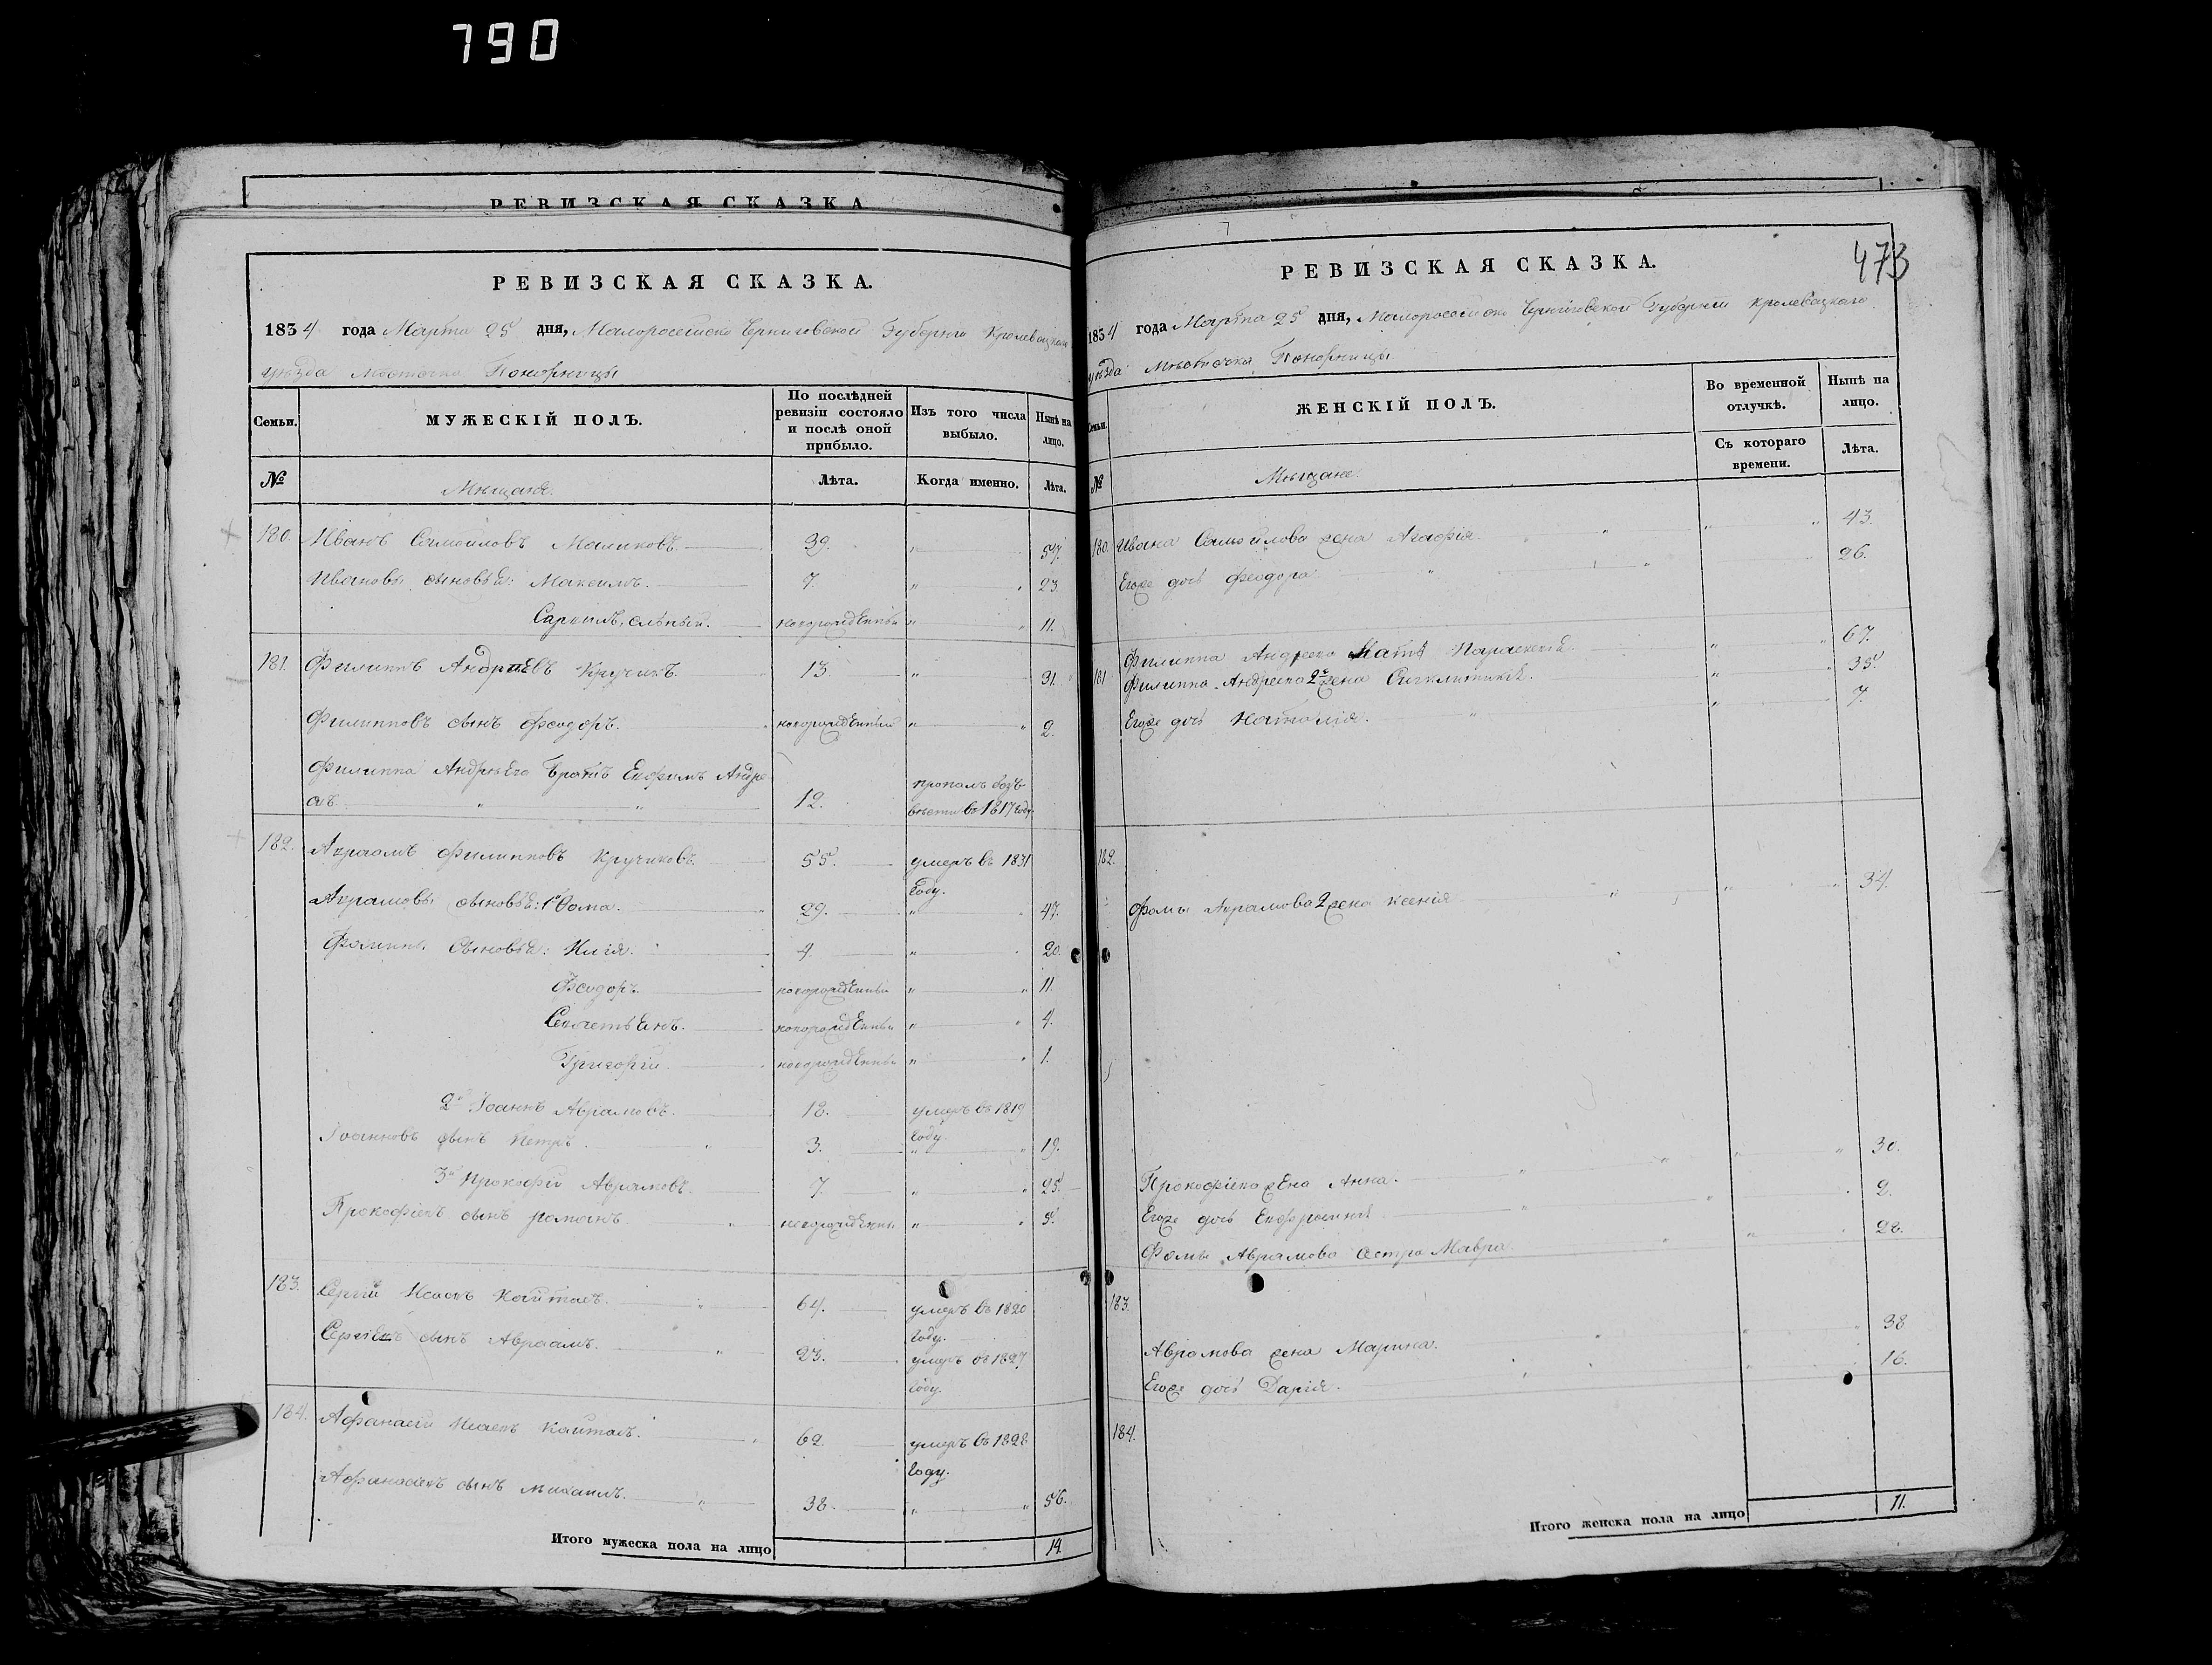 790
РЕВИЗСКАЯ СКАЗКА
РЕВИЗСКАЯ СКАЗКА.
1834 года Марта 25 дня, Малоросейско Черниговской Губернии Кролевецкаго
уѣзда Мѣсточка Понорницы
Семьи.
МУЖЕСКІЙ ПОЛЪ.
По послѣдней ревизіи состояло и послѣ оной прибыло.
Изъ того числа выбыло.
Нынѣ на лицо.
№
Мещане.
Лѣта.
Когда именно.
Лѣта.
180. Иванъ Самойловъ Маликовъ. 39. " 57.
Ивановы сыновья: Максимъ. 7. " " 23
слѣпый. новорожденный " " 11.
181. Филиппъ Андріевъ Кручикъ. 13. " 31.
Филипповъ сынъ Феодоръ. новорожденный " " 2.
Филиппа Андрѣева братъ Ефимъ Андре
" " 12. пропалъ безъ
вѣсти въ 1817 году.
182. Авраамъ Филипповъ Кручиковъ. 55. умеръ въ 1831
году.
Аврамовы сыновья: 1й Фома. " 29. " 47.
Фомины сыновья: Илія. 4. " 20.
Феодоръ. новорожденный " " 11.
новорожденный " " 4.
Григорій. новорожденный " " 1.
2й Іоаннъ Аврамовъ. 12. умеръ въ 1819
году.
Іоанновъ сынъ Петръ. " 3. " " 19.
3й Прокофій Аврамовъ. 7. " " 25.
Прокофіевъ сынъ Романъ. " новорожденны " " 5.
183. Сергій Исаевъ Кайтанъ. " 64. умеръ въ 1820
году.
Сергіевъ сынъ Авраамъ. " 23. умеръ въ 1827
году.
184. Афанасій Исаевъ Кайтанъ. " 62. умеръ въ 1828
году.
Афанасіевъ сынъ Михаилъ. " 38. " " 56.
Итого мужеска пола на лицо 14.
РЕВИЗСКАЯ СКАЗКА.
473
1834 года Марта 25 дня, Малоросейско Черниговской Губерніи Кролевецкаго
уѣзда Мѣсточка Понорницы
Семьи.
ЖЕНСКІЙ ПОЛЪ.
Во временной отлучкѣ.
Нынѣ на лицо.
№
Мѣщане.
Съ котораго времени.
Лѣта.
180. Ивана Самойлова жена Агафія. " " " 43.
Егоже дочь Феодора. " " 26.
Филиппа Андреева Мать Параскевія. " " 67.
181 Филиппа Андреева 2я жена Синклитикія. " " 35.
Егоже дочь Наталія. " " 7.
182.
Фомы Аврамова 2 жена Ксенія " " " 34.
Прокофіева жена Анна. " " " " 30.
Егоже дочь Ефросинія " " " 2.
Фомы Аврамова сестра Мавра. " " " 28.
183.
Аврамова жена Марина. " " " 38
Егоже дочь Дарія. " " " 16.
184.
Итого женска пола на лицо 11.